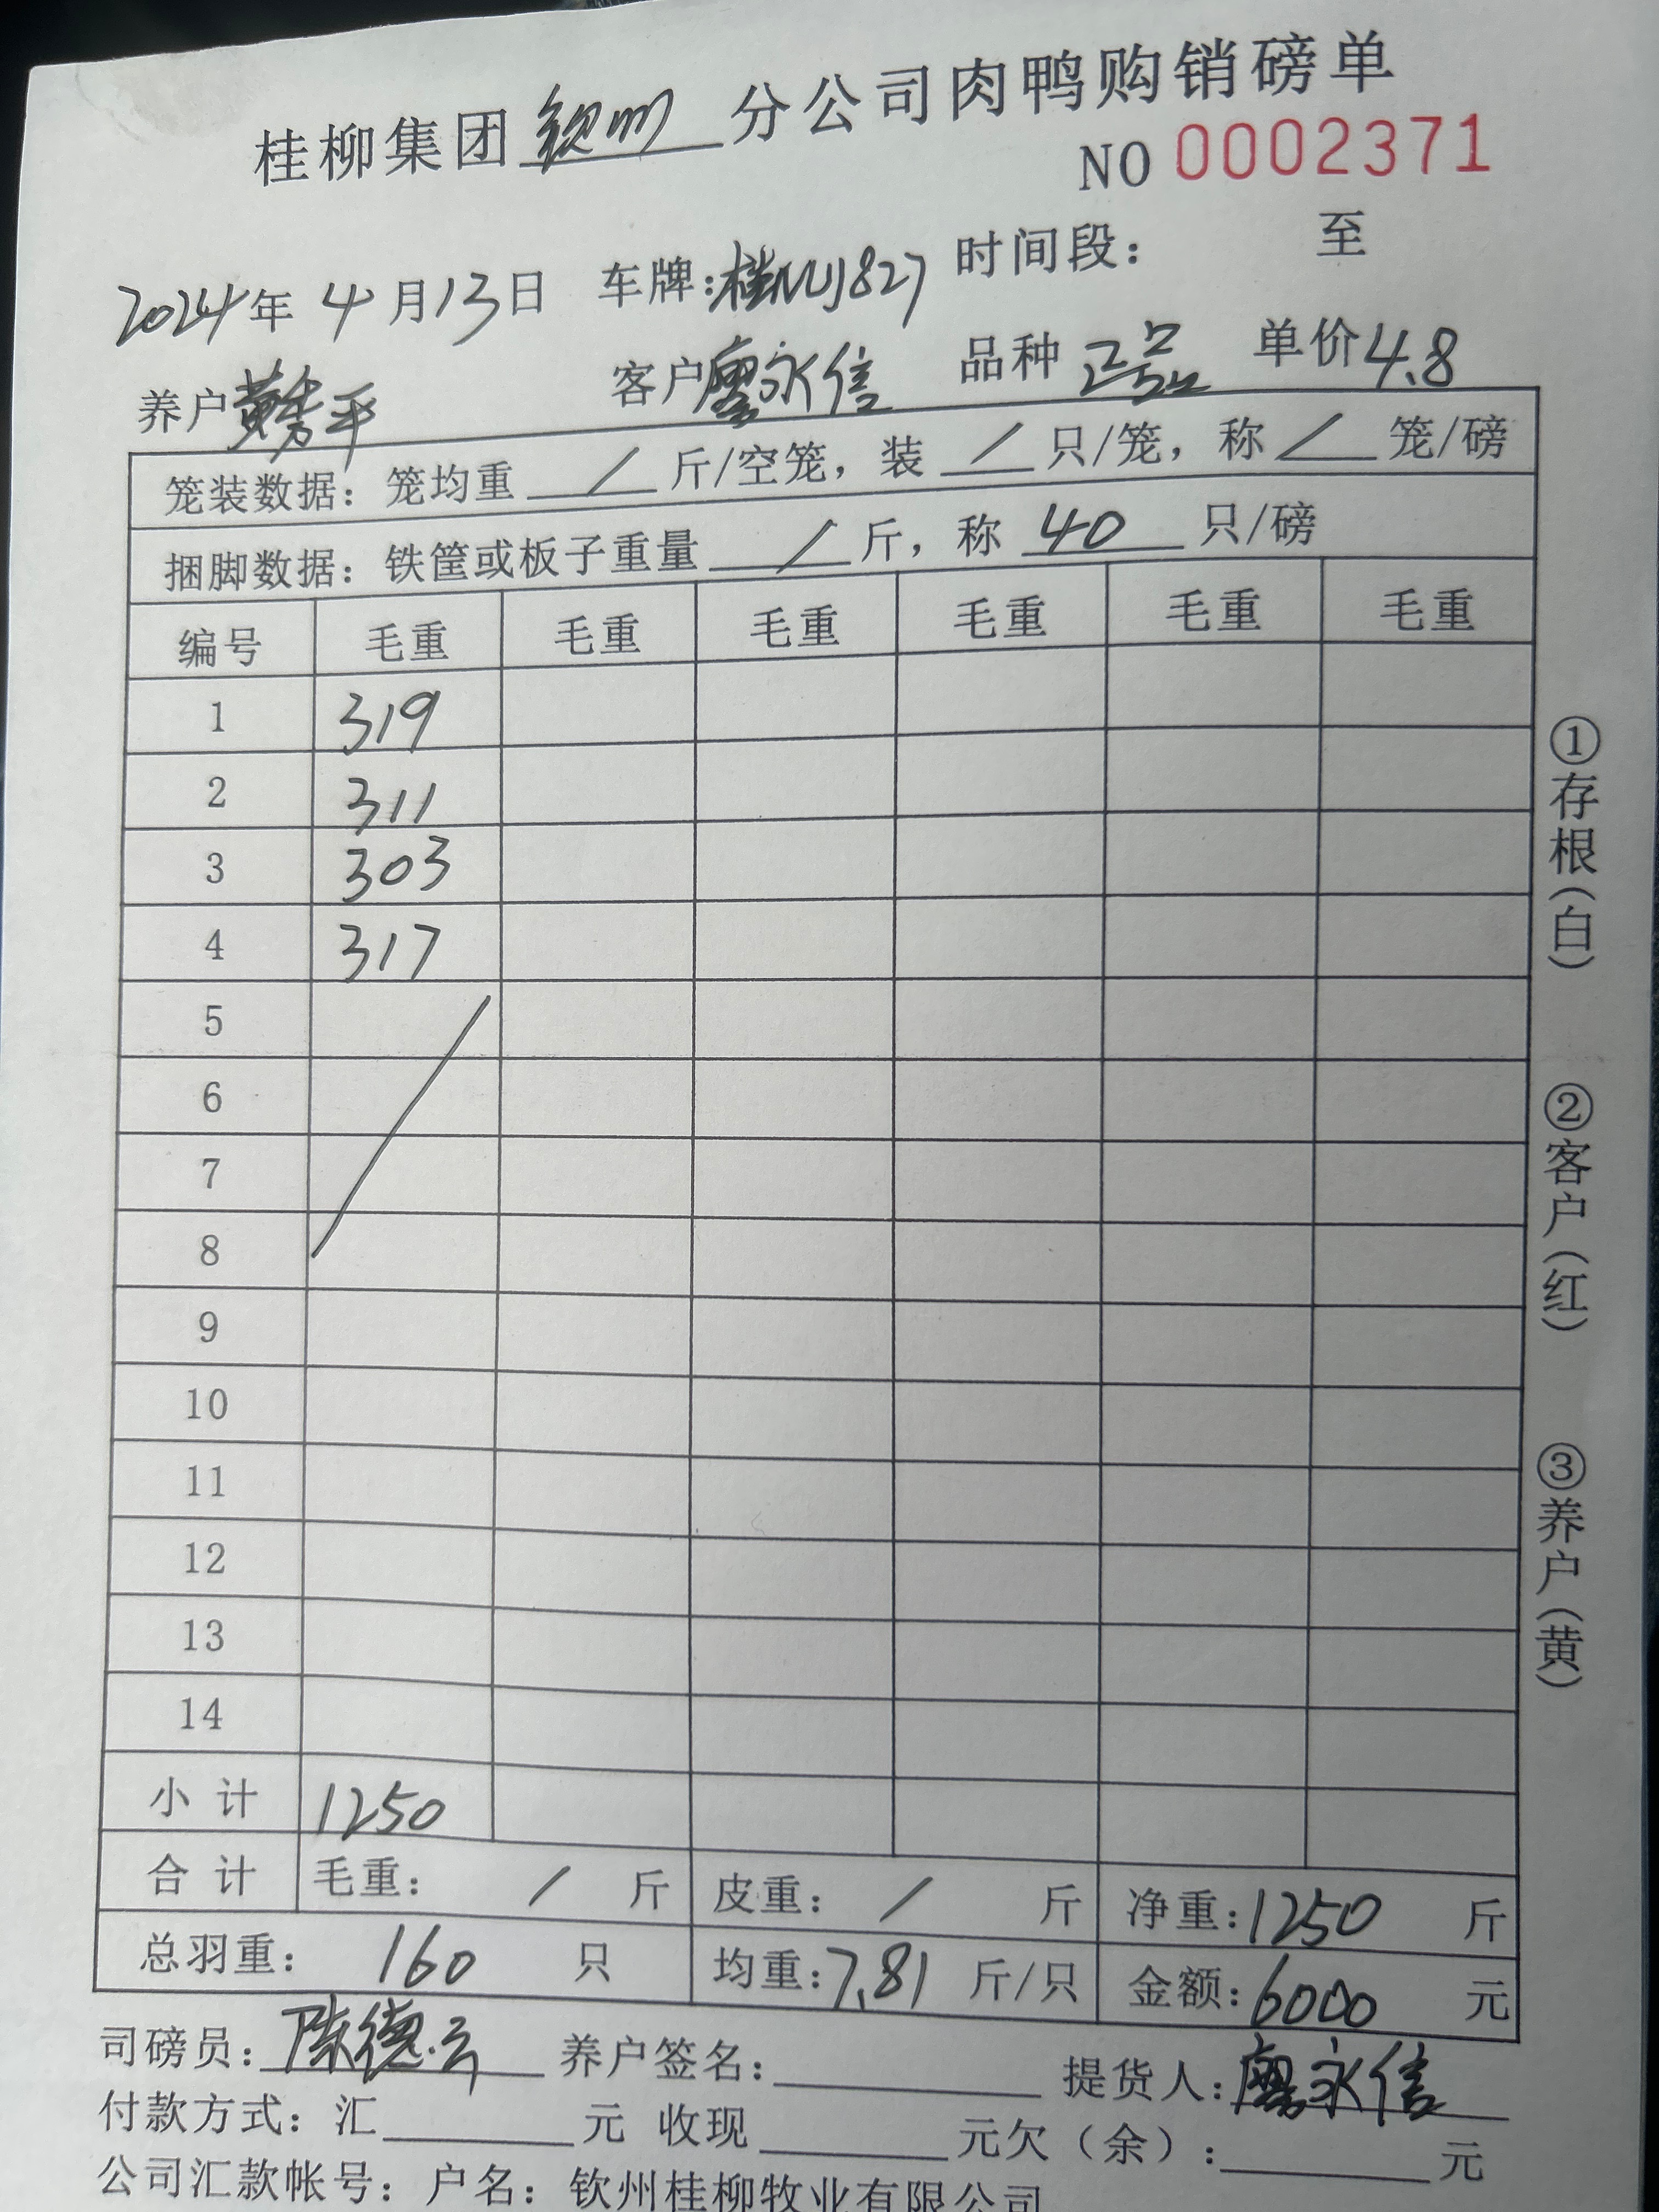 桂柳集团钦州分公司肉鸭购销磅单
NO 0002371
2024年4月13日 车牌:桂NUJ827 时间段: 至
养户黄秀平 客户廖永信 品种 正品 单价4.8
笼装数据: 笼均重 / 斤/空笼, 装 / 只/笼, 称 / 笼/磅
捆脚数据: 铁筐或板子重量 / 斤, 称 40 只/磅
编号 毛重 毛重 毛重 毛重 毛重 毛重
1 319
2 311
3 303
4 317
5
6
7
8
9
10
11
12
13
14
小计 1250
合计 毛重: / 斤 皮重: / 斤 净重:1250 斤
总羽重: 160 只 均重:7.81 斤/只 金额:6000 元
司磅员:陈德云 养户签名: 提货人:廖永信
付款方式: 汇 元 收现 元欠(余): 元
公司汇款帐号: 户名: 钦州桂柳牧业有限公司
①存根(白)
②客户(红)
③养户(黄)